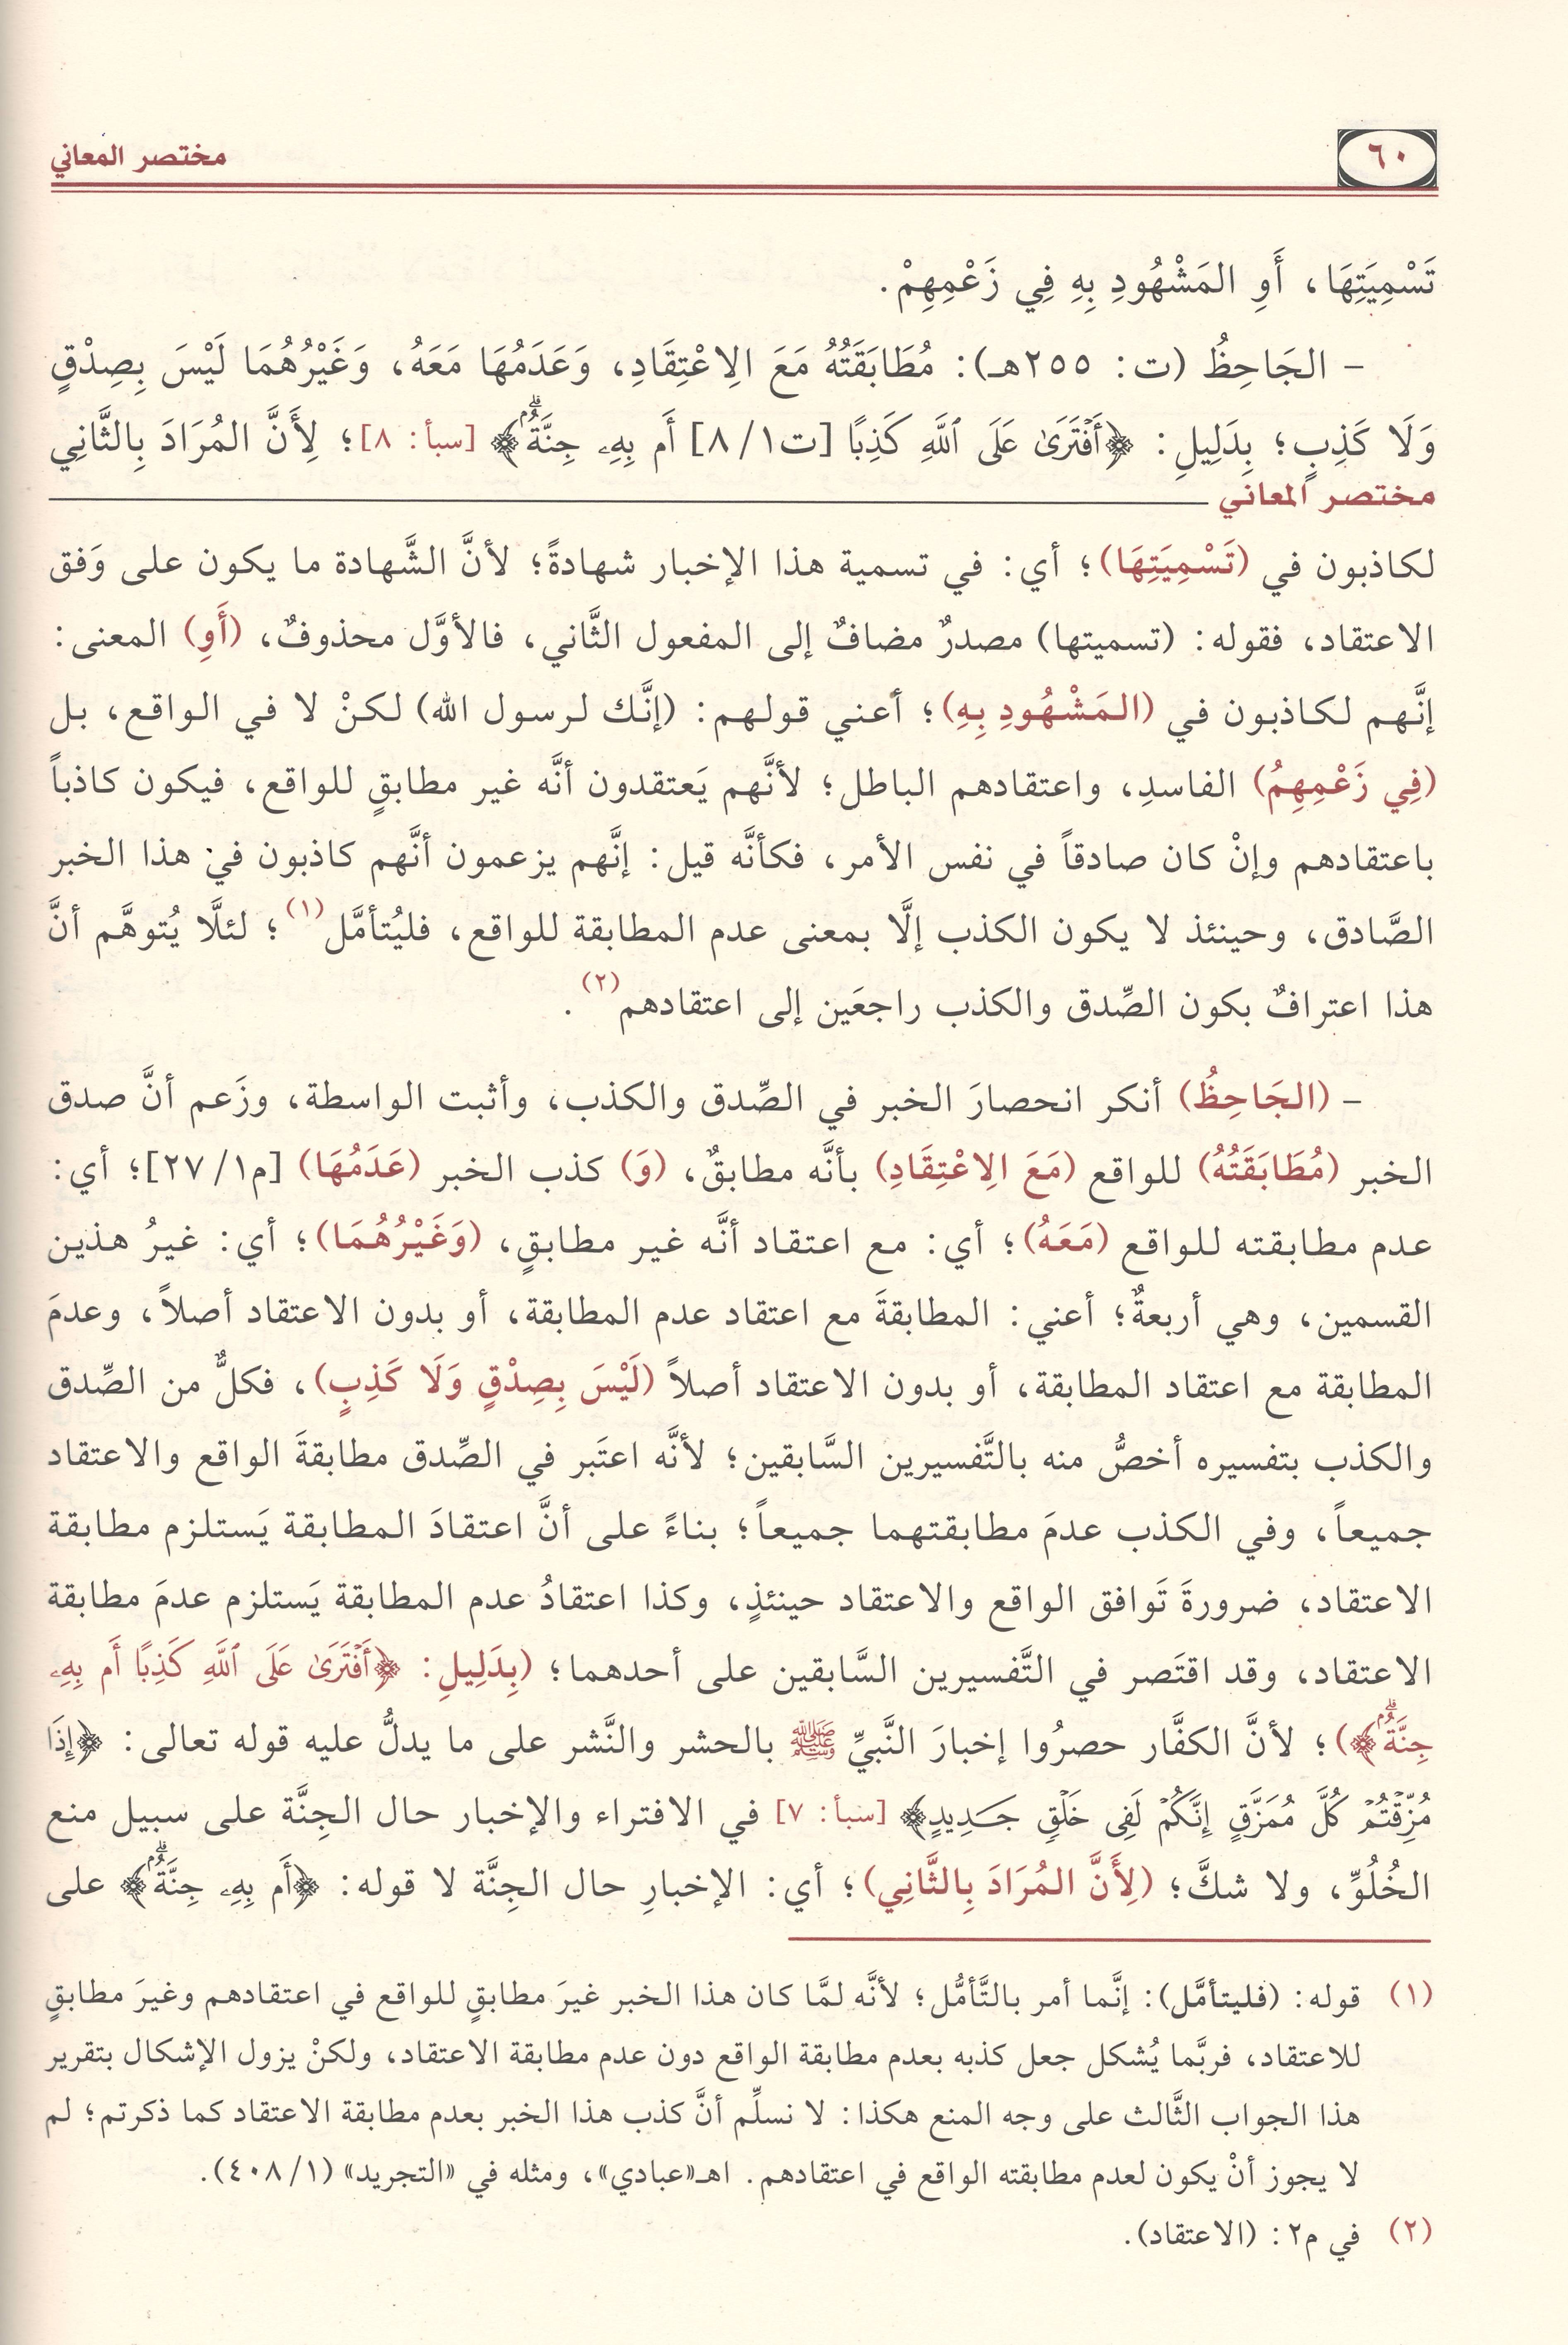 ٦٠
مختصر المعاني
تَسْمِيَتِهَا، أَوِ المَشْهُودِ بِهِ فِي زَعْمِهِمْ.
- الجَاحِظُ (ت: ٢٥٥هـ): مُطَابَقَتُهُ مَعَ الِاعْتِقَادِ، وَعَدَمُهَا مَعَهُ، وَغَيْرُهُمَا لَيْسَ بِصِدْقٍ
وَلَا كَذِبٍ؛ بِدَلِيلِ: ﴿أَفْتَرَىٰ عَلَى ٱللَّهِ كَذِبًا [ت٨/١] أَم بِهِۦ جِنَّةٌۗ﴾ [سبأ: ٨]؛ لِأَنَّ المُرَادَ بِالثَّانِي
مختصر المعاني
لكاذبون في (تَسْمِيَتِهَا)؛ أي: في تسمية هذا الإخبار شهادةً؛ لأنَّ الشَّهادة ما يكون على وَفق
الاعتقاد، فقوله: (تسميتها) مصدرٌ مضافٌ إلى المفعول الثَّاني، فالأوَّل محذوفٌ، (أَوِ) المعنى:
إنَّهم لكاذبون في (المَشْهُودِ بِهِ)؛ أعني قولهم: (إنَّك لرسول الله) لكنْ لا في الواقع، بل
(فِي زَعْمِهِمُ) الفاسدِ، واعتقادهم الباطل؛ لأنَّهم يَعتقدون أنَّه غير مطابقٍ للواقع، فيكون كاذباً
باعتقادهم وإنْ كان صادقاً في نفس الأمر، فكأنَّه قيل: إنَّهم يزعمون أنَّهم كاذبون في هذا الخبر
الصَّادق، وحينئذ لا يكون الكذب إلَّا بمعنى عدم المطابقة للواقع، فليُتأمَّل(١)؛ لئلَّا يُتوهَّم أنَّ
هذا اعترافٌ بكون الصِّدق والكذب راجعَين إلى اعتقادهم(٢).
- (الجَاحِظُ) أنكر انحصارَ الخبر في الصِّدق والكذب، وأثبت الواسطة، وزَعم أنَّ صدق
الخبر (مُطَابَقَتُهُ) للواقع (مَعَ الِاعْتِقَادِ) بأنَّه مطابقٌ، (وَ) كذب الخبر (عَدَمُهَا) [م٢٧/١]؛ أي:
عدم مطابقته للواقع (مَعَهُ)؛ أي: مع اعتقاد أنَّه غير مطابقٍ، (وَغَيْرُهُمَا)؛ أي: غيرُ هذين
القسمين، وهي أربعةٌ؛ أعني: المطابقةَ مع اعتقاد عدم المطابقة، أو بدون الاعتقاد أصلاً، وعدمَ
المطابقة مع اعتقاد المطابقة، أو بدون الاعتقاد أصلاً (لَيْسَ بِصِدْقٍ وَلَا كَذِبٍ)، فكلٌّ من الصِّدق
والكذب بتفسيره أخصُّ منه بالتَّفسيرين السَّابقين؛ لأنَّه اعتَبر في الصِّدق مطابقةَ الواقع والاعتقاد
جميعاً، وفي الكذب عدمَ مطابقتهما جميعاً؛ بناءً على أنَّ اعتقادَ المطابقة يَستلزم مطابقة
الاعتقاد، ضرورةَ تَوافق الواقع والاعتقاد حينئذٍ، وكذا اعتقادُ عدم المطابقة يَستلزم عدمَ مطابقة
الاعتقاد، وقد اقتَصر في التَّفسيرين السَّابقين على أحدهما؛ (بِدَلِيلِ: ﴿أَفْتَرَىٰ عَلَى ٱللَّهِ كَذِبًا أَم بِهِۦ
جِنَّةٌۗ﴾)؛ لأنَّ الكفَّار حصرُوا إخبارَ النَّبيِّ ﷺ بالحشر والنَّشر على ما يدلُّ عليه قوله تعالى: ﴿إِذَا
مُزِّقْتُمْ كُلَّ مُمَزَّقٍ إِنَّكُمْ لَفِى خَلْقٍ جَدِيدٍ﴾ [سبأ: ٧] في الافتراء والإخبار حال الجِنَّة على سبيل منع
الخُلُوِّ، ولا شكَّ؛ (لِأَنَّ المُرَادَ بِالثَّانِي)؛ أي: الإخبارِ حال الجِنَّة لا قوله: ﴿أَم بِهِۦ جِنَّةٌۗ﴾ على
(١) قوله: (فليتأمَّل): إنَّما أمر بالتَّأمُّل؛ لأنَّه لمَّا كان هذا الخبر غيرَ مطابقٍ للواقع في اعتقادهم وغيرَ مطابقٍ
للاعتقاد، فربَّما يُشكل جعل كذبه بعدم مطابقة الواقع دون عدم مطابقة الاعتقاد، ولكنْ يزول الإشكال بتقرير
هذا الجواب الثَّالث على وجه المنع هكذا: لا نسلِّم أنَّ كذب هذا الخبر بعدم مطابقة الاعتقاد كما ذكرتم؛ لم
لا يجوز أنْ يكون لعدم مطابقته الواقع في اعتقادهم. اهـ«عبادي»، ومثله في «التجريد» (٤٠٨/١).
(٢) في م٢: (الاعتقاد).